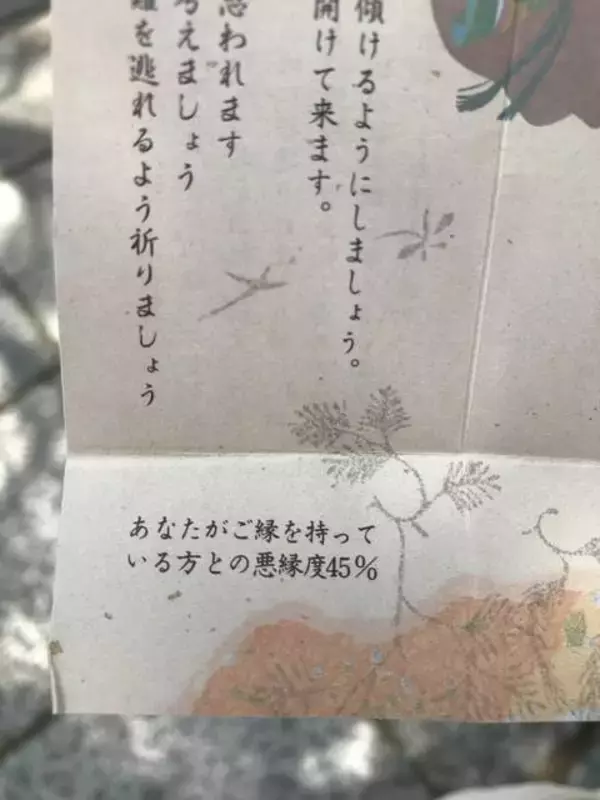 傾けるようにしましょう。
開けて来ます。
思われます
考えましょう
難を逃れるよう祈りましょう
あなたがご縁を持って
いる方との悪縁度45%